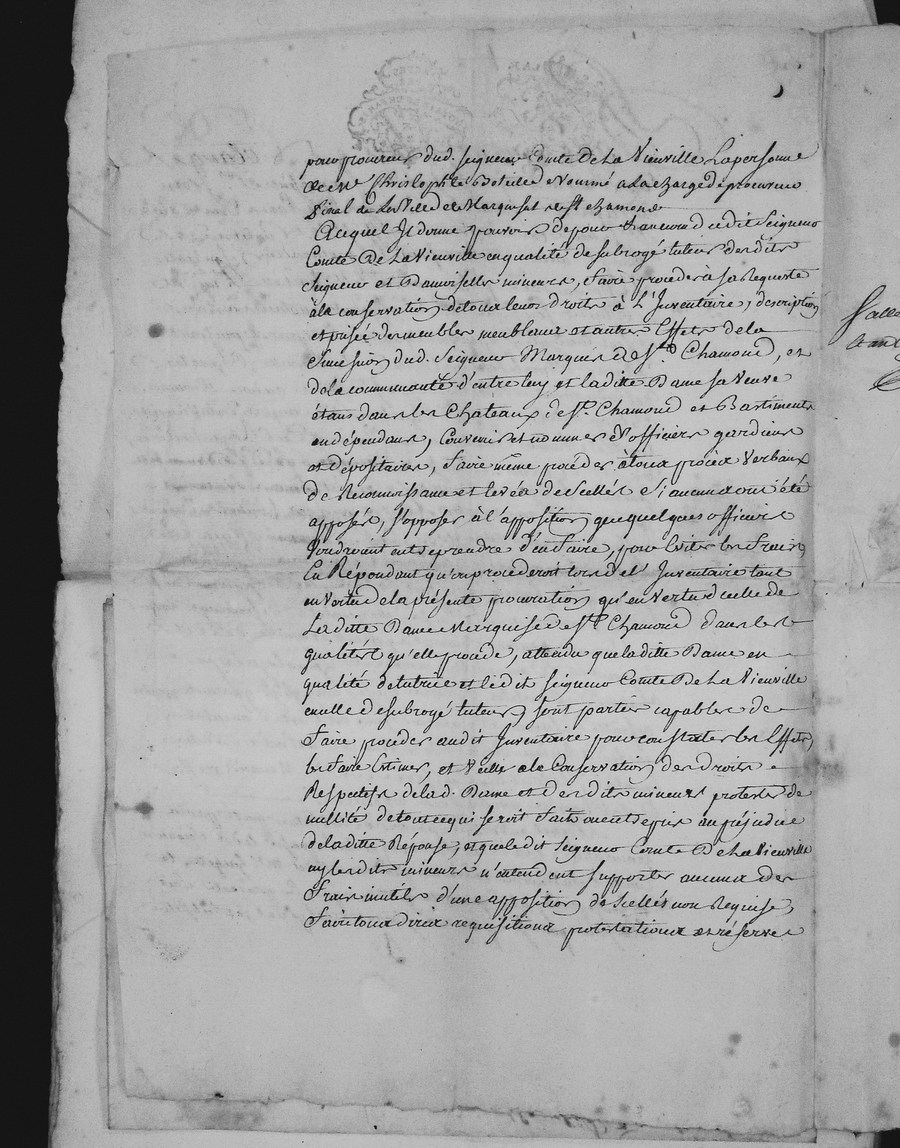 pour procureur dud. seigneur Comte De La Vieuville La personne
de Me Christophle
fiscal de La Ville et Marquisat de St. Chamond
Auquel Il donne pouvoir de pour & au nom dudit Seigneur
Comte De La Vieuville en qualité de subrogé tuteur desdits
Seigneur et Damoiselles mineurs, faire proceder à sa Requeste
à la conservation de tous leurs droits à L'Inventaire, description
et prisée des meubles meublans et autres Effets de la
Succession dud. Seigneur Marquis de St. Chamond, et
de la communauté d'entre luy et la ditte Dame sa Veuve
étans dans les Chateaux de St. Chamond et Bastiments
en dépendans, Convenir et nommer d'officiers gardiens
et dépositaires, faire même proceder à tous procès Verbaux
de Reconnoissance et levée de Scellés Si aucuns ont été
apposés, s'opposer à l'apposition que quelques officiers
Voudroient entreprendre d'en faire, pour Eviter les fraix
En Répondant qu'on procederoit lors de l' Inventaire tant
en Vertu de la présente procuration qu'en Vertu d'celle de
La ditte Dame Marquise de St. Chamond dans les
qualités qu'elle procede, attendu que la ditte Dame en
qualité de tutrice et ledit Seigneur Comte De La Vieuville
en celle de subrogé tuteur sont parties capables de
faire proceder audit Inventaire pour constater les Effets,
les faire Estimer, et Veiller à la Conservation des droits
Respectifs de la d. Dame et desdits mineurs protester de
nullité de tout ce qui seroit fait ou entrepris au préjudice
de la ditte Réponse, et que ledit Seigneur Comte De La Vieuville
ny lesdits mineurs n'entendent supporter aucuns des
frais inutils d'une apposition de Scellés non Requise,
faire tous dires requisitions protestations et réserves